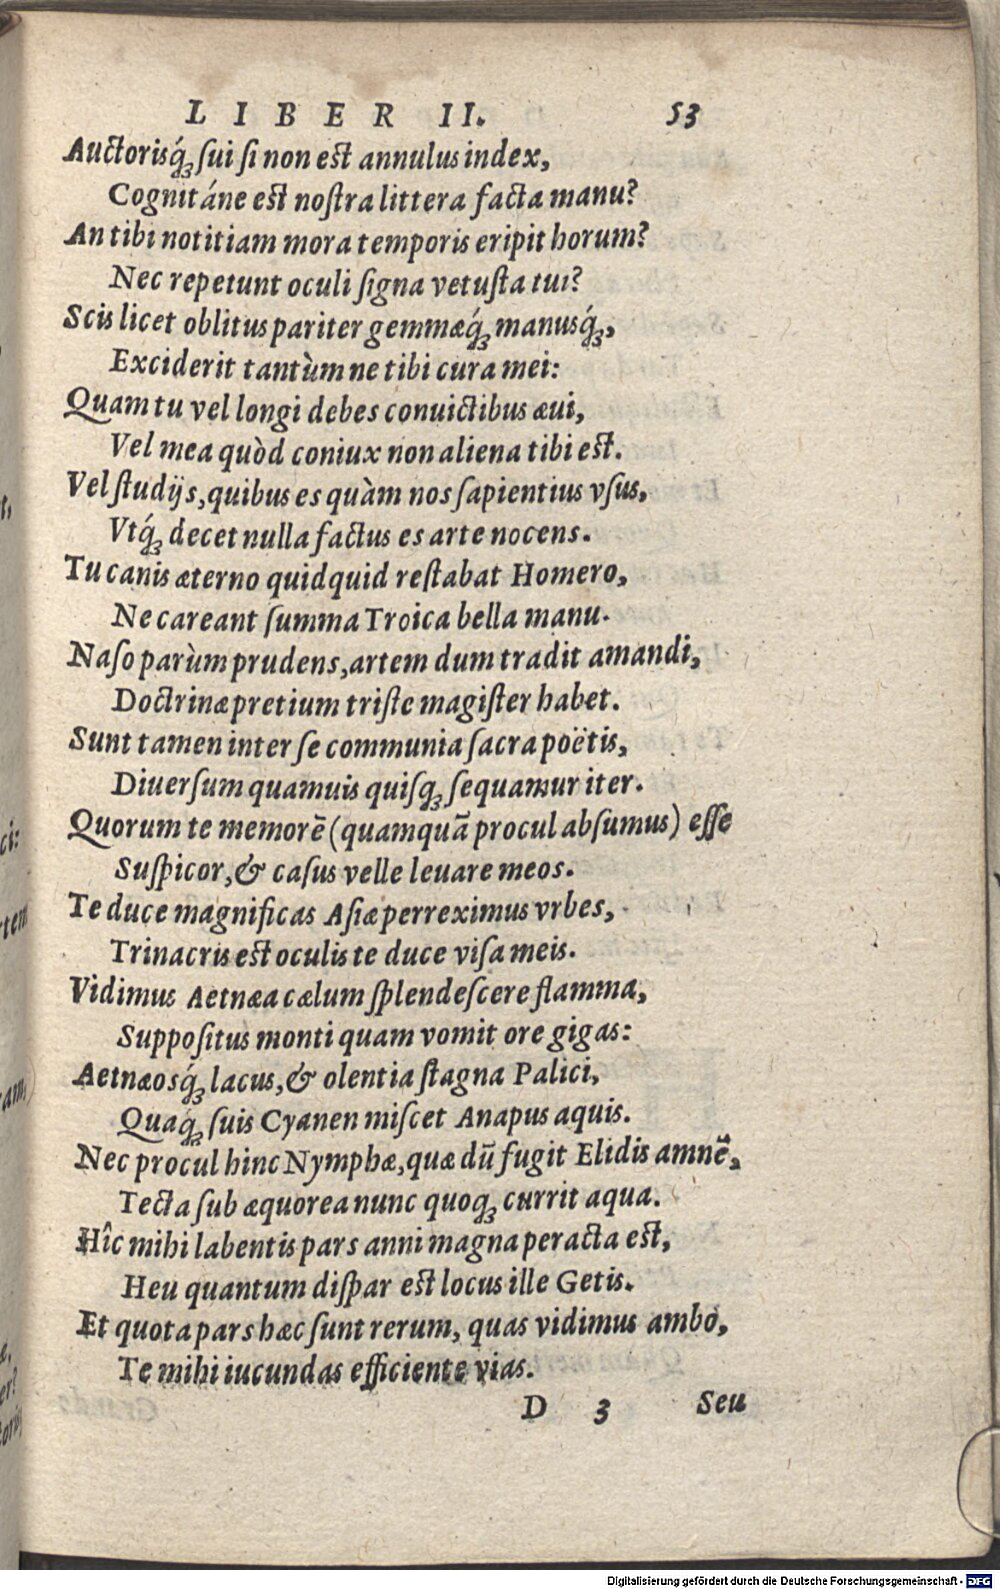 LIBER II. 53
Auctorisq́; ſui ſi non est annulus index,
Cognitáne est noſtra littera facta manu?
An tibi notitiam mora temporis eripit horum?
Nec repetunt oculi ſigna vetuſta tui?
Scis licet oblitus pariter gemmæq́; manusq́;,
Exciderit tantùm ne tibi cura mei:
Quam tu vel longi debes conuictibus æui,
Vel mea quòd coniux non aliena tibi est.
Vel ſtudijs, quibus es quàm nos ſapientius vſus,
Vtq́; decet nulla factus es arte nocens.
Tu canis æterno quidquid reſtabat Homero,
Ne careant ſumma Troica bella manu.
Naſo parùm prudens, artem dum tradit amandi,
Doctrinæ pretium triſte magiſter habet.
Sunt tamen inter ſe communia ſacra poëtis,
Diuerſum quamuis quiſq; ſequamur iter.
Quorum te memorē (quamquā procul abſumus) eſſe
Suſpicor, & caſus velle leuare meos.
Te duce magnificas Aſiæ perreximus vrbes,
Trinacris est oculis te duce viſa meis.
Vidimus Aetnæa cælum ſplendeſcere flamma,
Suppoſitus monti quam vomit ore gigas:
Aetnæosq́; lacus, & olentia ſtagna Palici,
Quaq; ſuis Cyanen miſcet Anapus aquis.
Nec procul hinc Nymphæ, quæ dū fugit Elidis amnē,
Tecta ſub æquorea nunc quoq; currit aqua.
Hîc mihi labentis pars anni magna peracta est,
Heu quantum diſpar est locus ille Getis.
Et quota pars hæc ſunt rerum, quas vidimus ambo,
Te mihi iucundas efficiente vias.
D 3 Seu
Digitalisierung gefördert durch die Deutsche Forschungsgemeinschaft - DFG